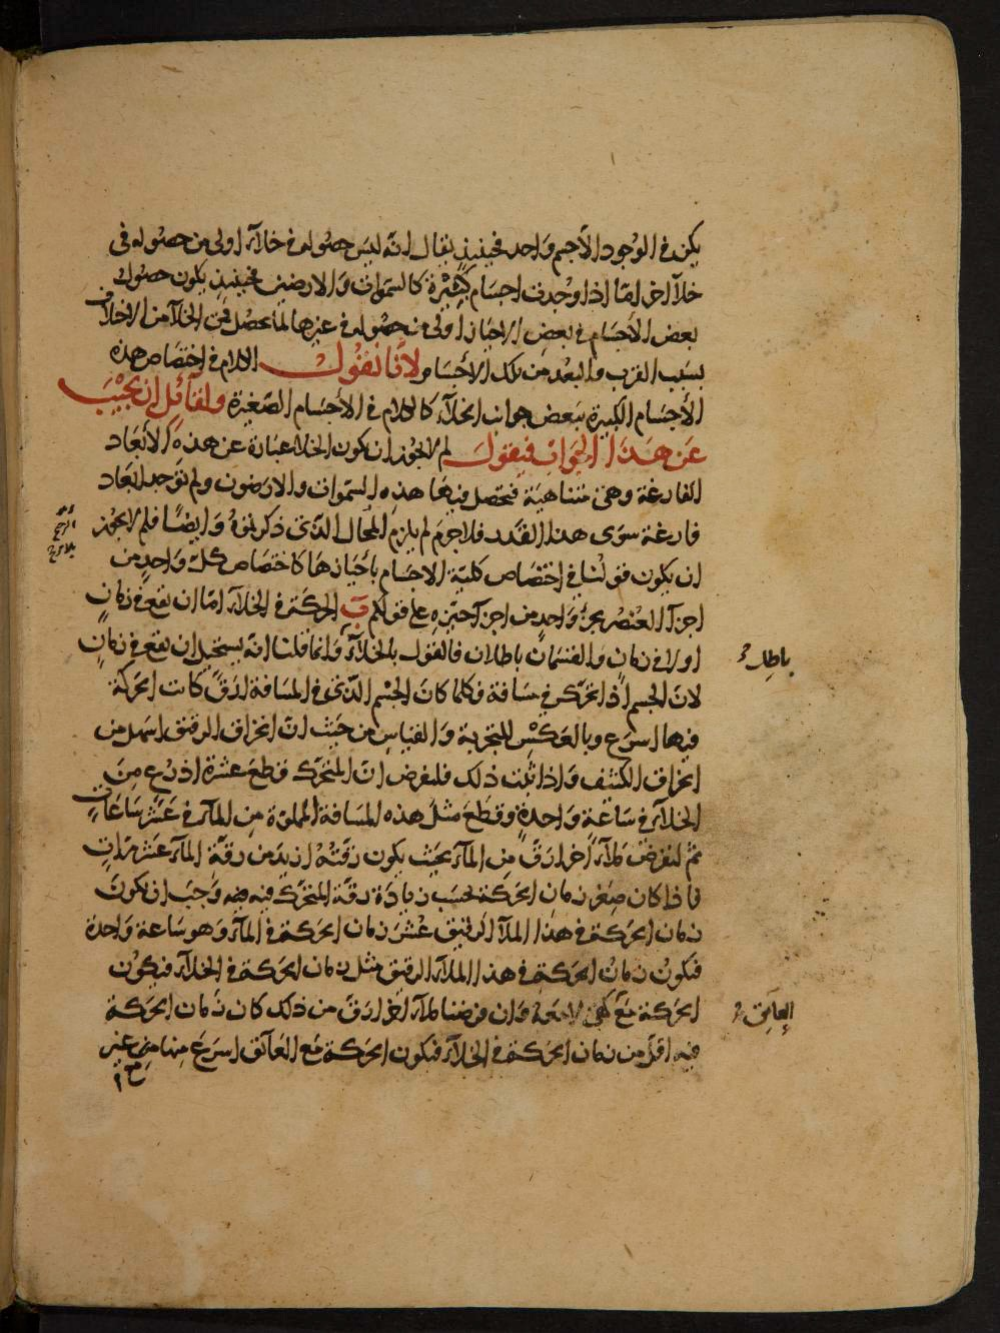 يكن في الوجود الا جسم واحد فحينئذ يقال انه ليس حصوله في خلآء اولى من حصوله في
خلآء اخر امّا اذا وجدت اجسام كثيرة كالسموات والارضين فحينئذ يكون حصول
بعض الاجسام في بعض الاحياز اولى من حصوله في غيرها لما يحصل في الخلآء من الاختلاف
بسبب القرب والبعد من تلك الاجسام لانا نقول الكلام في اختصاص هذه
الاجسام الكبيرة ببعض جوانب الخلآء كالكلام في الاجسام الصغيرة ولقائل ان يجيب
عن هذا الجواب فيقول لم لا يجوز ان يكون الخلا عبارة عن هذه الابعاد
الفارغة وهي متناهية فتحصل فيها هذه السموات والارضون ولم توجد ابعاد
فارغة سوى هذا القدر فلا جرم لم يلزم المحال الذي ذكرتموه وايضا فلم لا يجوز
ان يكون قولنا في اختصاص كلية الاجسام باحيازها كاختصاص كل واحد من
اجزآء العنصر بجزء واحد من اجزآء حيزه على قولكم ب الحركة في الخلآء امّا ان تقع في زمان
اولا في زمان والقسمان باطلان فالقول بالخلآء وانما قلنا انه يستحيل ان تقع في زمان
باطل
لان الجسم اذا تحرك في مسافة فكلما كان الجسم الذي في المسافة ارق كانت الحركة
فيها اسرع وبالعكس للتجربة والقياس من حيث ان انخراق الرقيق اسهل من
انخراق الكثيف واذا ثبت ذلك فلنفرض ان المتحرك قطع عشرة اذرع من
الخلآء في ساعة واحدة وقطع مثل هذه المسافة المملوة من المآء في عشر ساعات
ثم لنفرض ملآء اخر ارق من المآء بحيث يكون رقته ازيد من رقة المآء عشر مرات
فاذا كان صغر زمان الحركة بحسب زيادة رقة المتحرك فيه وجب ان يكون
زمان الحركة في هذا الملآء الرقيق عشر زمان الحركة في المآء وهو ساعة واحدة
فيكون زمان الحركة في هذا الملآء الرقيق مثل زمان الحركة في الخلآء فيكون
الحركة مع كهي لا معه وان فرضنا ملآء اخر ارق من ذلك كان زمان الحركة
العايق
فيه اقل من زمان الحركة في الخلآء فيكون الحركة مع العآئق اسرع منها من غير